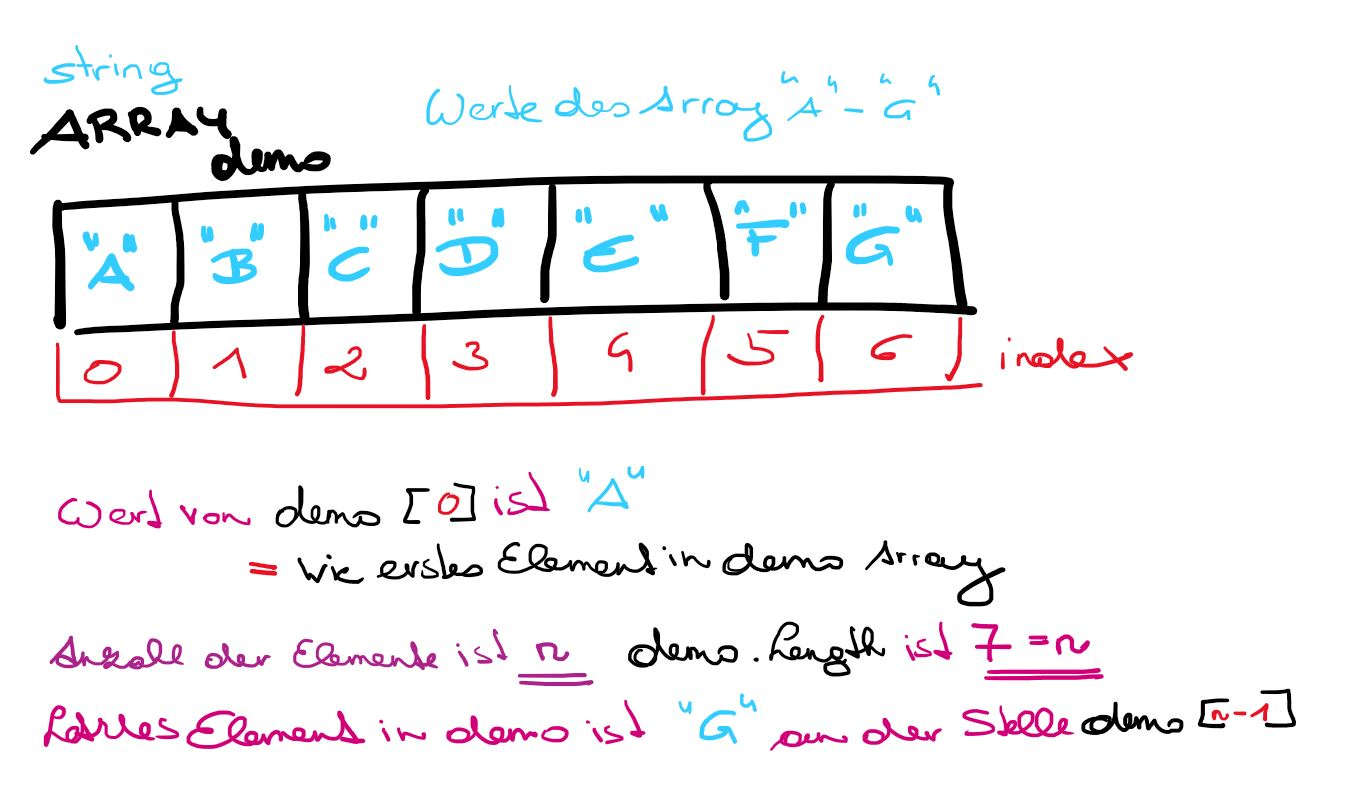 string
ARRAY
demo
Werte des Array "A" - "G"
"A" "B" "C" "D" "E" "F" "G"
0 1 2 3 4 5 6 index
Wert von demo [0] ist "A"
= wie erstes Element in demo Array
Anzahl der Elemente ist n demo.Length ist 7 = n
Letztes Element in demo ist "G" an der Stelle demo [n-1]